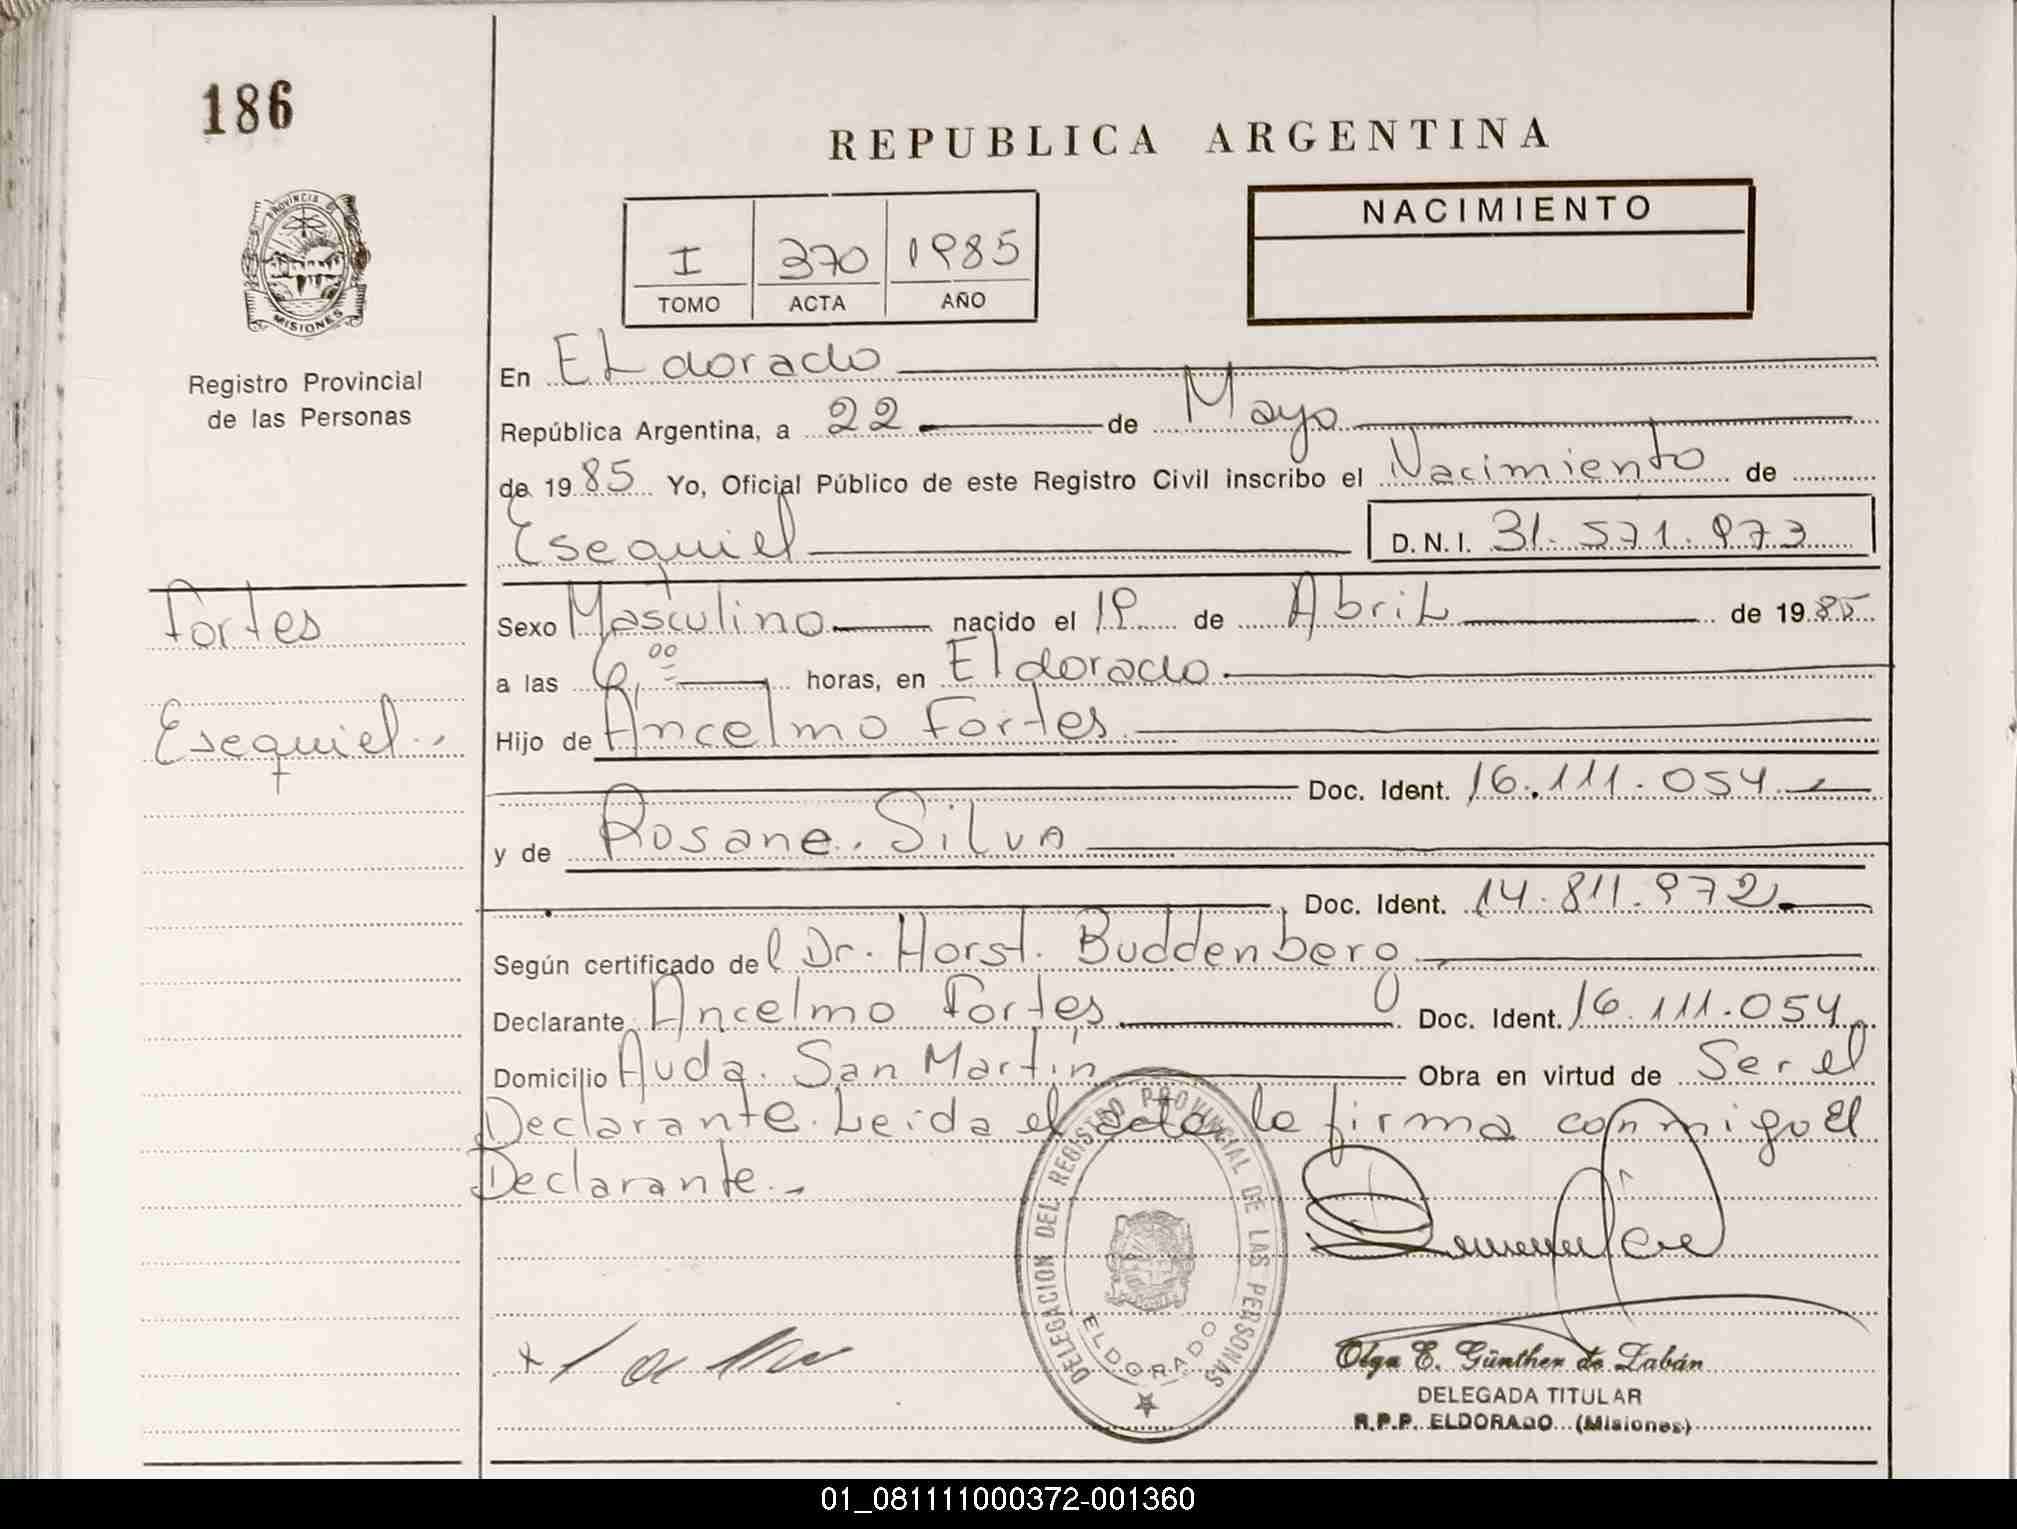 186
REPUBLICA ARGENTINA
PROVINCIA DE
MISIONES
Registro Provincial
de las Personas
NACIMIENTO
I 370 1985
TOMO ACTA AÑO
En ELdorado
República Argentina, a 22 de Mayo
de 1985 Yo, Oficial Público de este Registro Civil inscribo el Nacimiento de
Esequiel D.N.I. 31.571.973
Fortes
Esequiel.
Sexo Masculino nacido el 19 de AbriL de 1985
a las 6,00 horas, en Eldorado
Hijo de Ancelmo Fortes
Doc. Ident. 16.111.054
y de Rosane. SiLVA
Doc. Ident. 14.811.972
Según certificado del Dr. Horst. Buddenberg
Declarante Ancelmo Fortes Doc. Ident. 16.111.054
Domicilio Avda. San Martín Obra en virtud de Ser el
Declarante. Leida el acta la firma conmigo El
Declarante.
DELEGACION DEL REGISTRO PROVINCIAL DE LAS PERSONAS
ELDORADO
Olga E. Günther de Zabán
DELEGADA TITULAR
R.P.P. ELDORADO (Misiones)
01_081111000372-001360